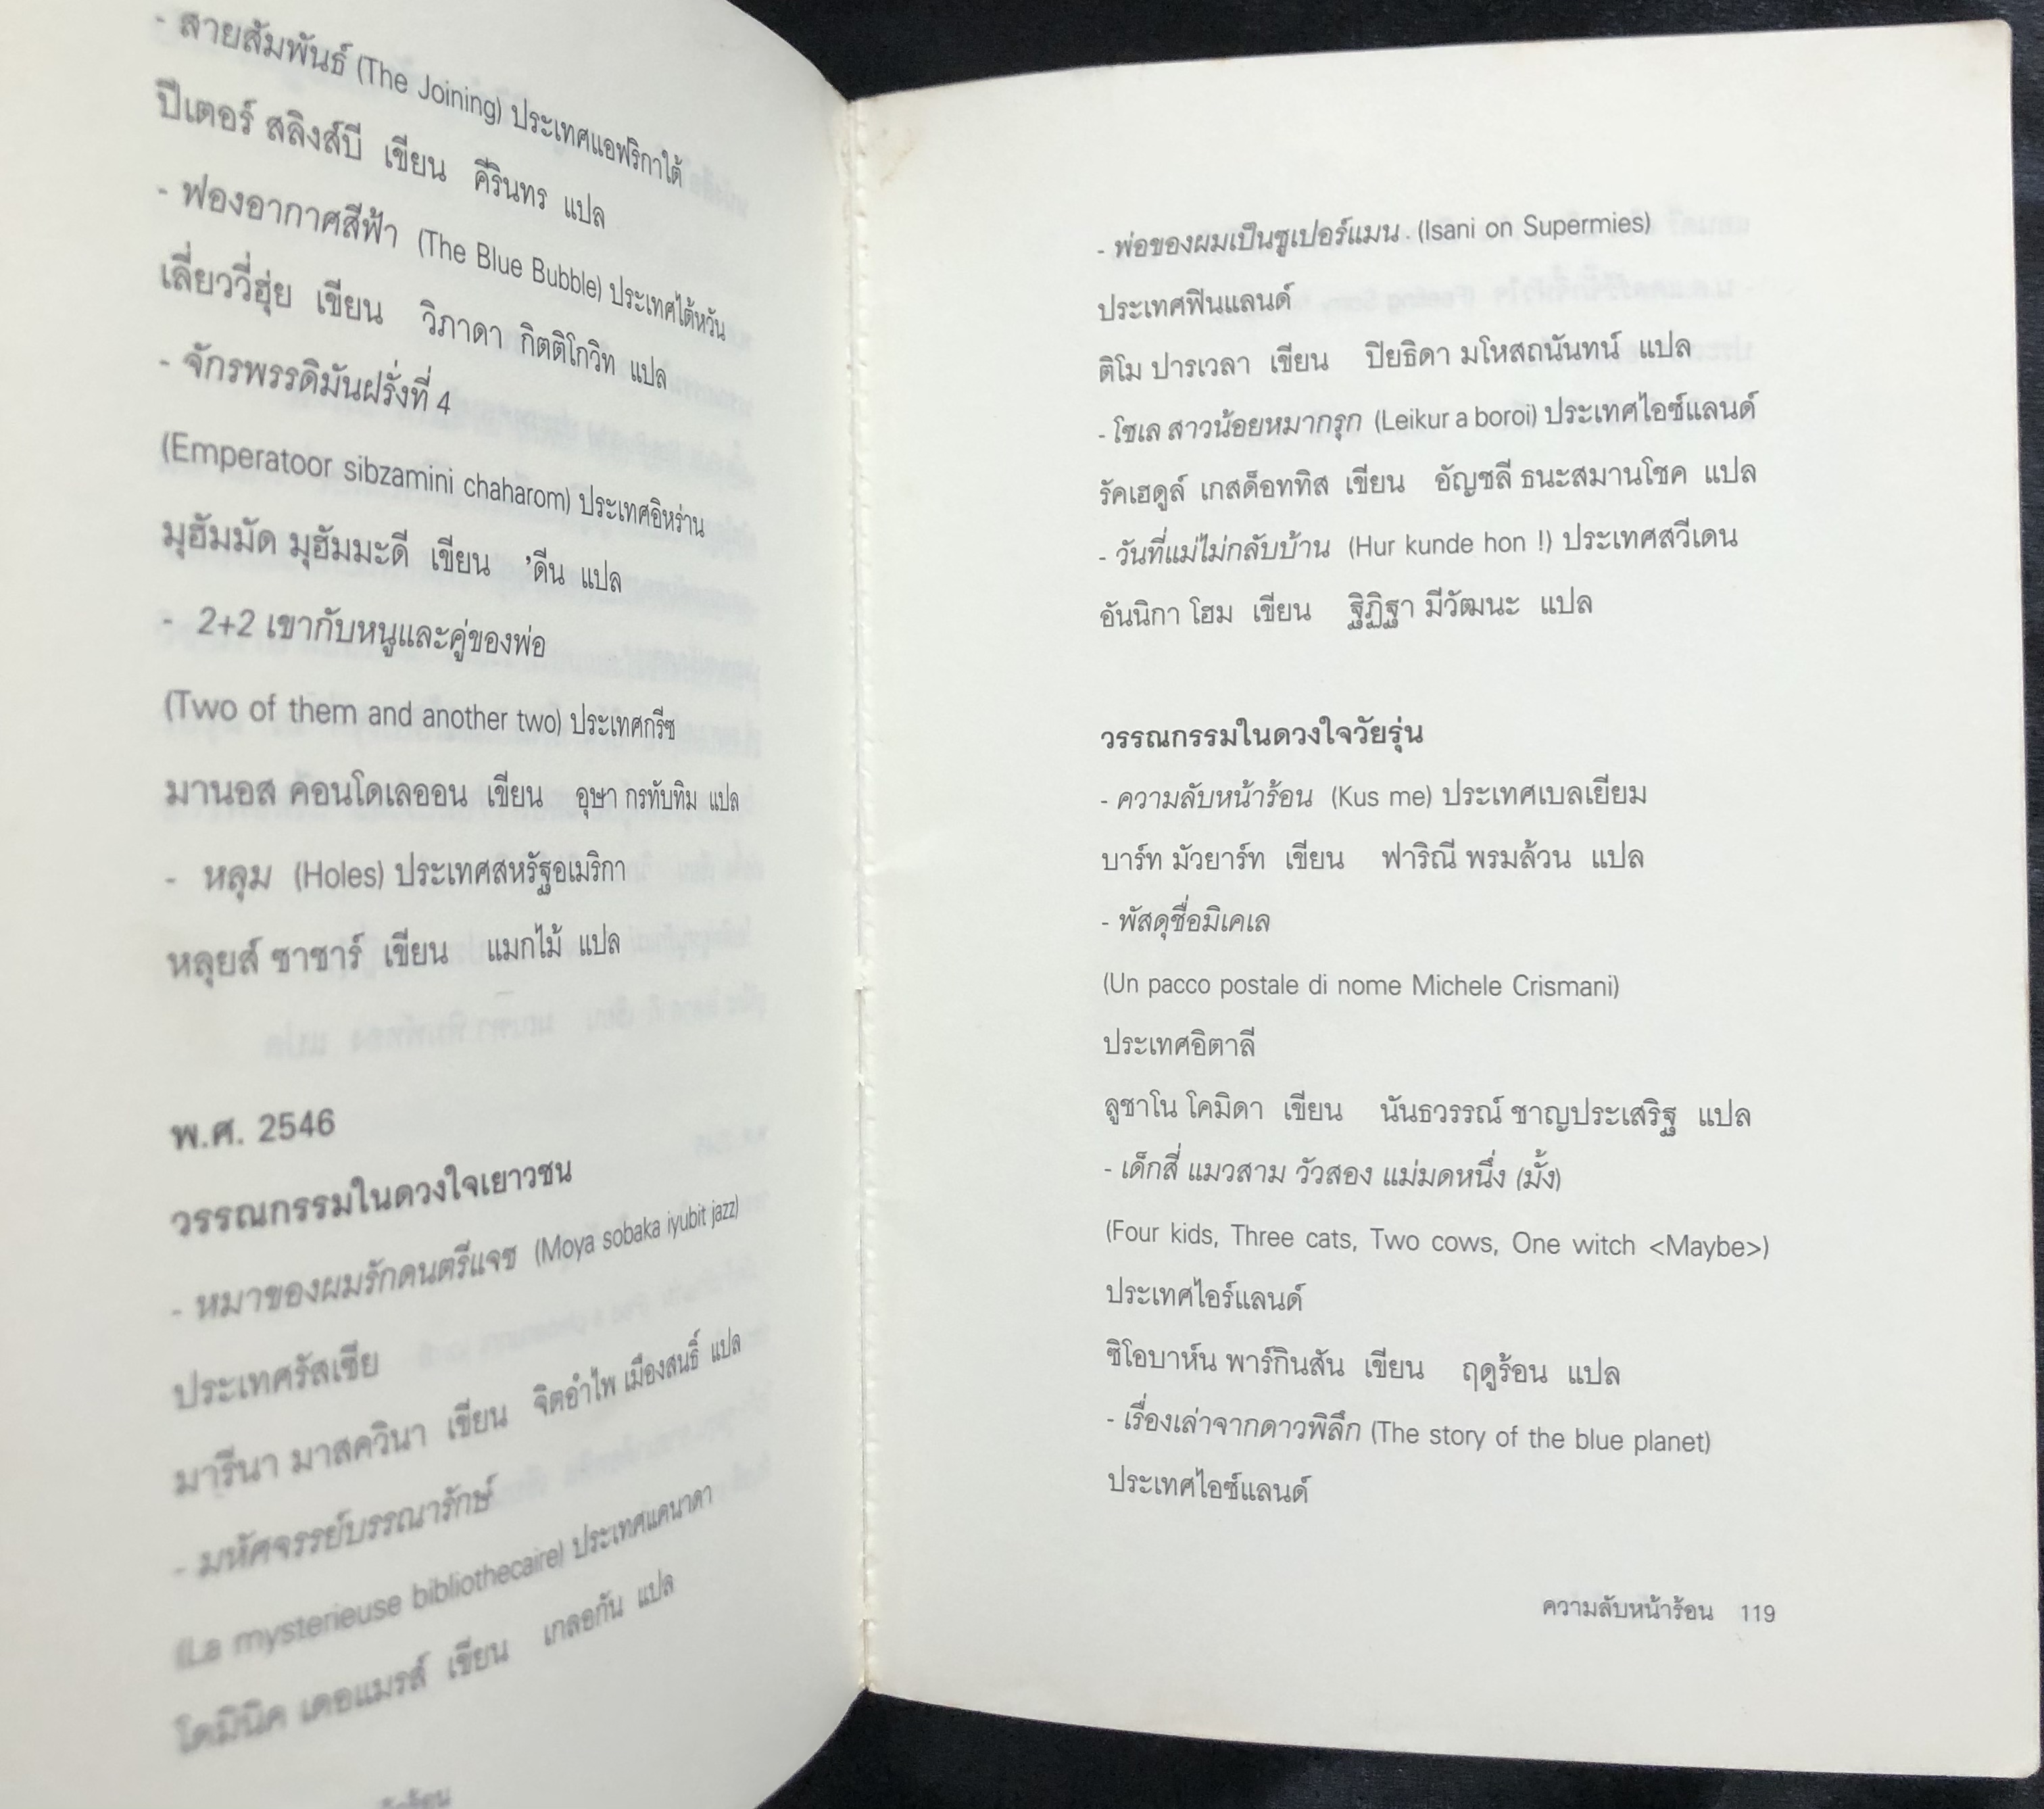 - สายสัมพันธ์ (The Joining) ประเทศแอฟริกาใต้
ปีเตอร์ สลิงส์บี เขียน คีรินทร แปล
- ฟองอากาศสีฟ้า (The Blue Bubble) ประเทศไต้หวัน
เลี่ยววี่ฮุ่ย เขียน วิภาดา กิตติโกวิท แปล
- จักรพรรดิมันฝรั่งที่ 4
(Emperatoor sibzamini chaharom) ประเทศอิหร่าน
มุฮัมมัด มุฮัมมะดี เขียน 'ดีน แปล
- 2+2 เขากับหนูและคู่ของพ่อ
(Two of them and another two) ประเทศกรีซ
มานอส คอนโดเลออน เขียน อุษา กรทับทิม แปล
- หลุม (Holes) ประเทศสหรัฐอเมริกา
หลุยส์ ซาชาร์ เขียน แมกไม้ แปล
พ.ศ. 2546
วรรณกรรมในดวงใจเยาวชน
- หมาของผมรักดนตรีแจซ (Moya sobaka iyubit jazz)
ประเทศรัสเซีย
มารีนา มาสควินา เขียน จิตอำไพ เมืองสนธิ์ แปล
- มหัศจรรย์บรรณารักษ์
(La mysterieuse bibliothecaire) ประเทศแคนาดา
โดมินิค เดอแมรส์ เขียน เกลอกัน แปล
- พ่อของผมเป็นซูเปอร์แมน . (Isani on Supermies)
ประเทศฟินแลนด์
ติโม ปารเวลา เขียน ปิยธิดา มโหสถนันทน์ แปล
- โซเล สาวน้อยหมากรุก (Leikur a boroi) ประเทศไอซ์แลนด์
รัคเฮดูล์ เกสด็อททิส เขียน อัญชลี ธนะสมานโชค แปล
- วันที่แม่ไม่กลับบ้าน (Hur kunde hon !) ประเทศสวีเดน
อันนิกา โฮม เขียน ฐิฏิฐา มีวัฒนะ แปล
วรรณกรรมในดวงใจวัยรุ่น
- ความลับหน้าร้อน (Kus me) ประเทศเบลเยียม
บาร์ท มัวยาร์ท เขียน ฟาริณี พรมล้วน แปล
- พัสดุชื่อมิเคเล
(Un pacco postale di nome Michele Crismani)
ประเทศอิตาลี
ลูชาโน โคมิดา เขียน นันธวรรณ์ ชาญประเสริฐ แปล
- เด็กสี่ แมวสาม วัวสอง แม่มดหนึ่ง (มั้ง)
(Four kids, Three cats, Two cows, One witch <Maybe>)
ประเทศไอร์แลนด์
ซิโอบาห์น พาร์กินสัน เขียน ฤดูร้อน แปล
- เรื่องเล่าจากดาวพิลึก (The story of the blue planet)
ประเทศไอซ์แลนด์
ความลับหน้าร้อน 119